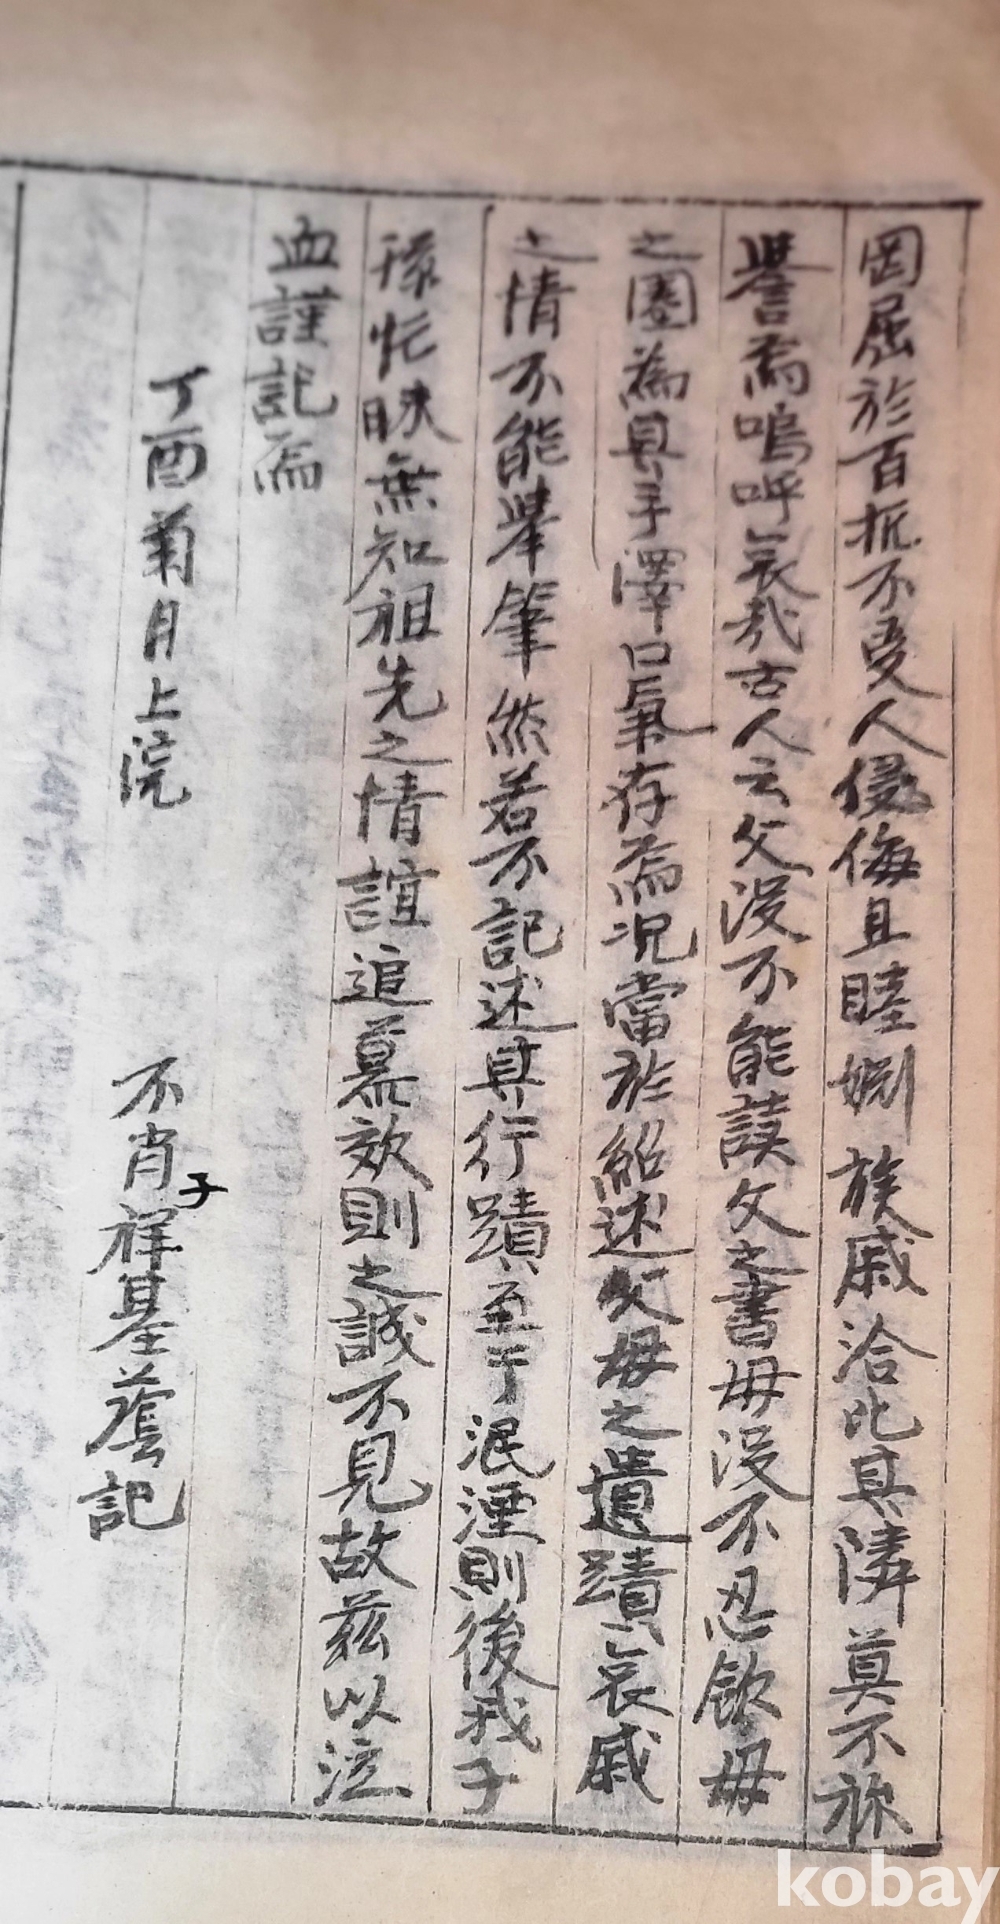 罔屈於百抗不受人侵侮且睦婣族戚洽比其隣莫不称
譽焉嗚呼哀哉古人云父沒不能讀父之書母沒不忍飮母
之圈為其手澤口氣存焉况當於紹述父母之遺蹟哀戚
之情不能擧筆然若不記述其行蹟至于泯湮則後我子
孫恍昧無知祖先之情誼追慕效則之誠不見故玆以泣
血謹記焉
丁酉菊月上浣
不肖子祥基蓫記
kobay